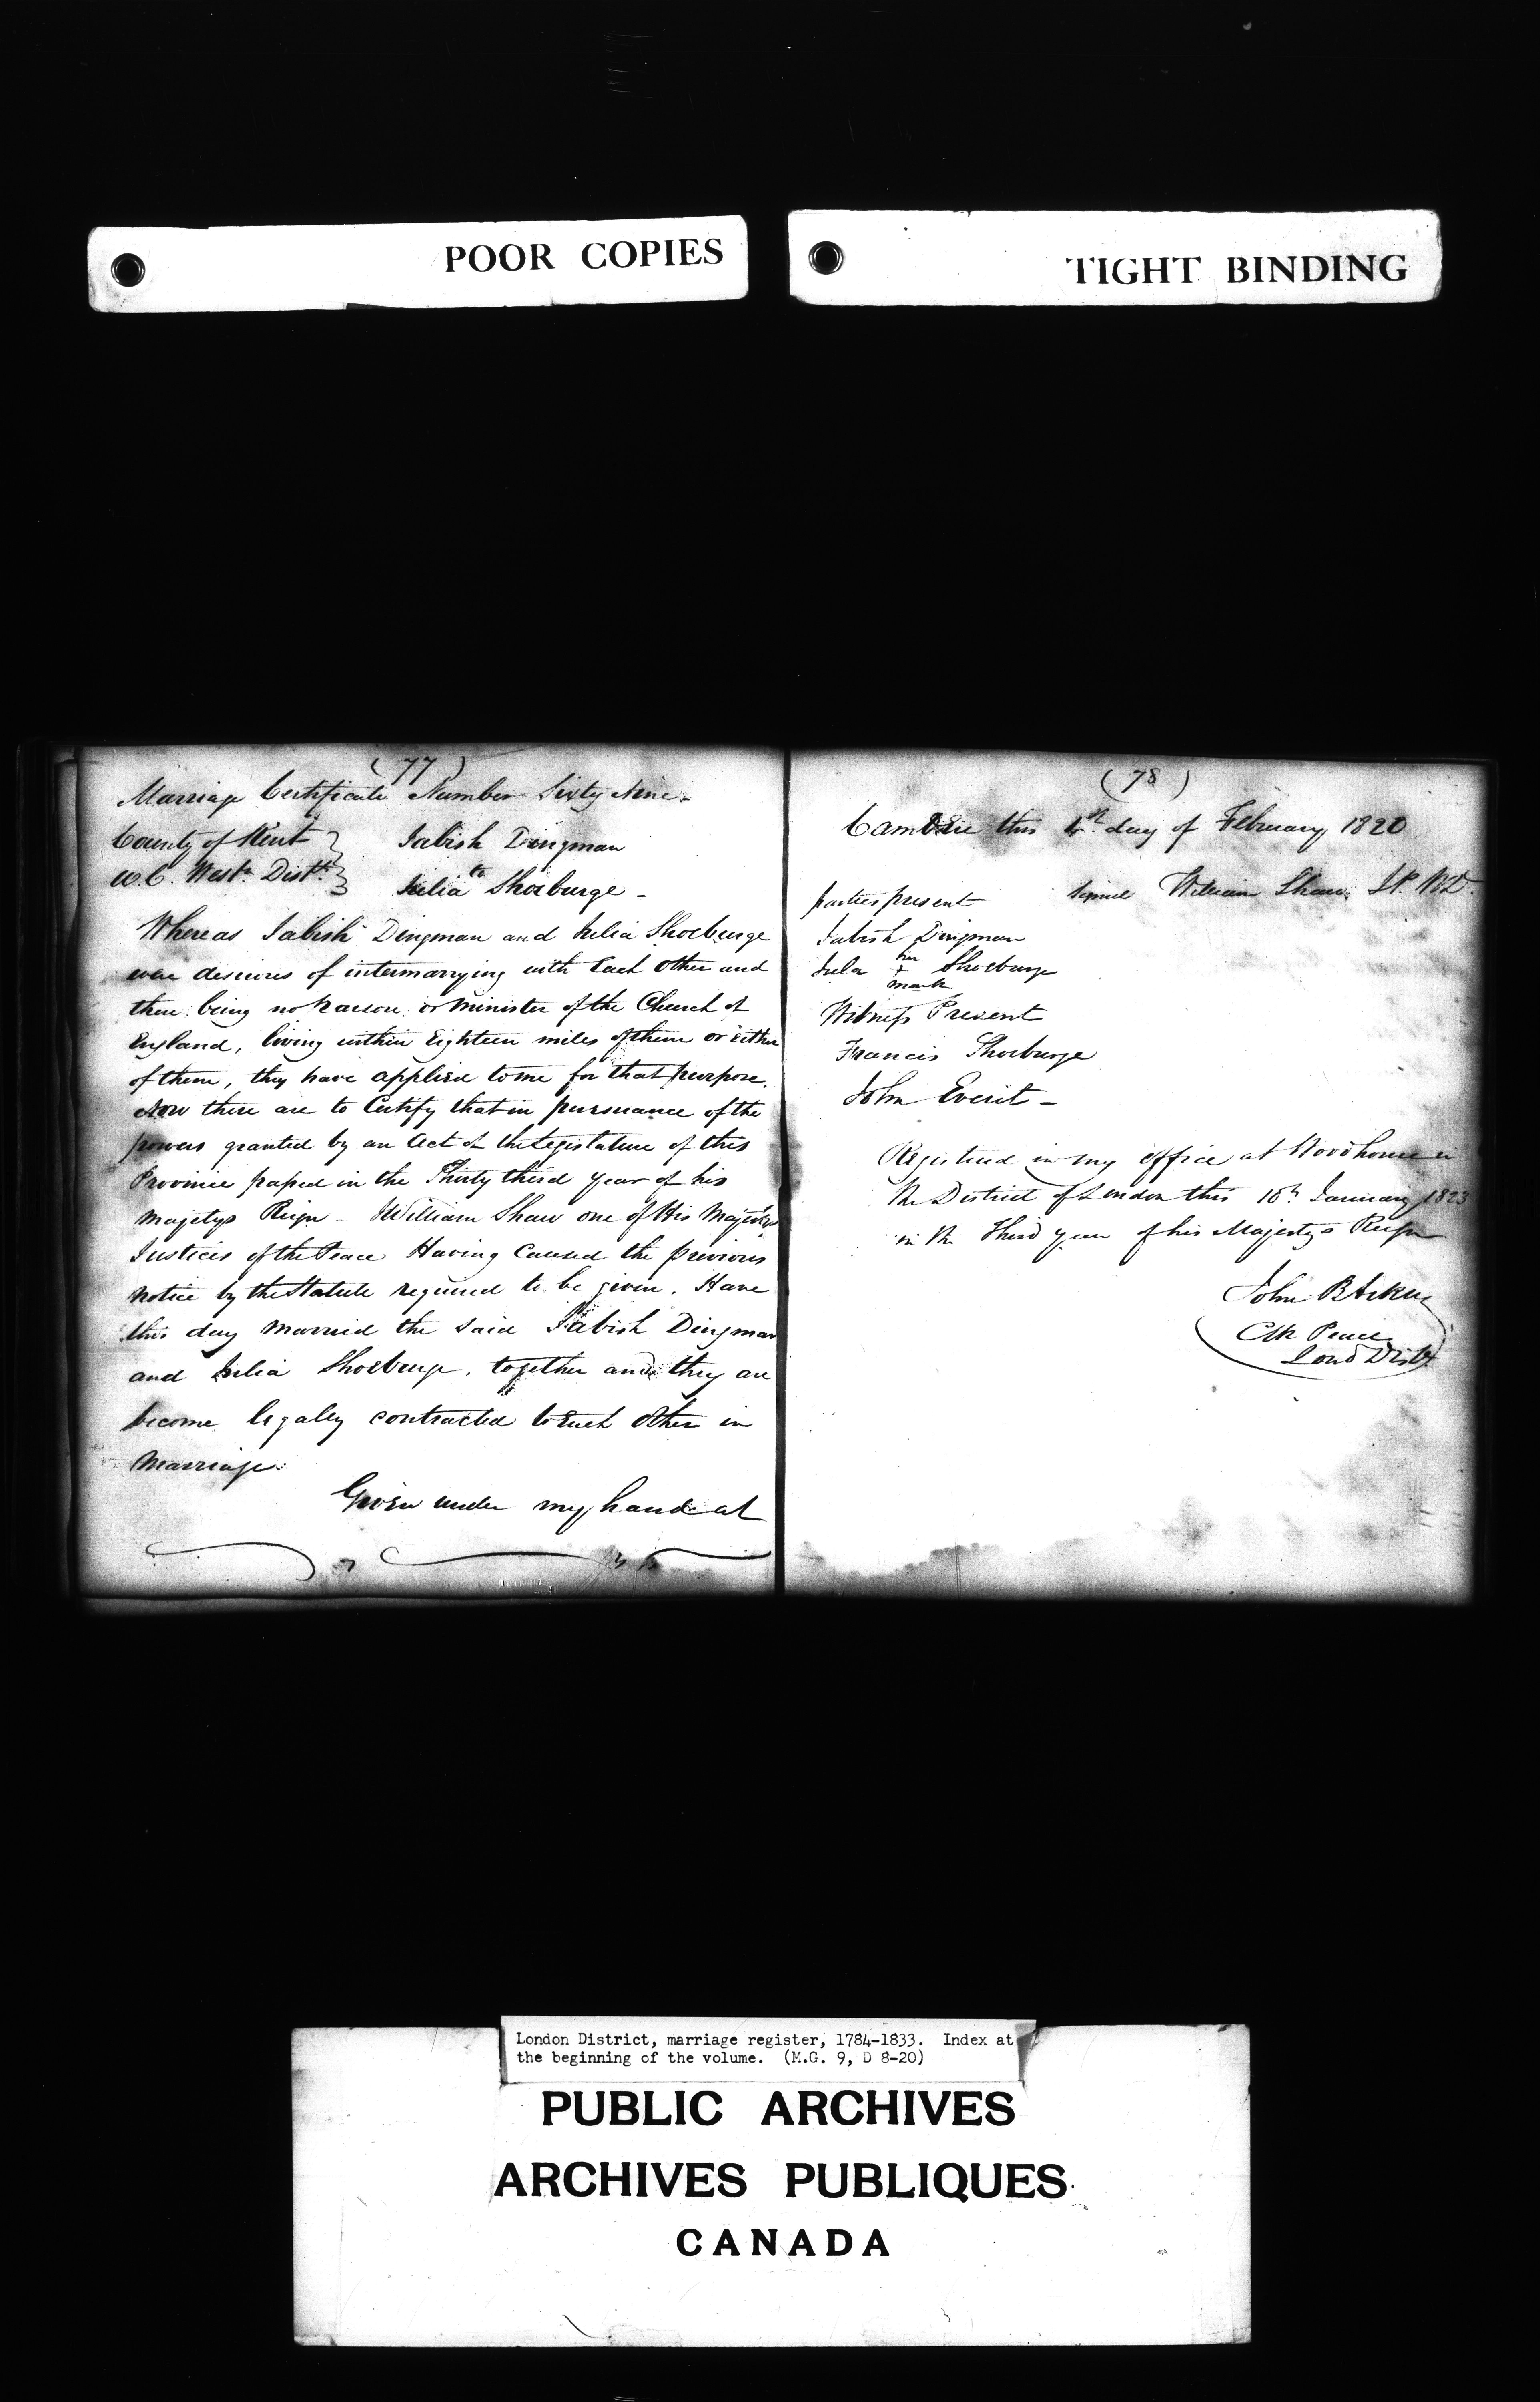 POOR COPIES
TIGHT BINDING
(77)
Marriage Certificate Number Sixty Nine.
County of Kent } Jabish Dingman
U.C. West.n Dist.t } to
Julia Shoeburge -
Whereas Jabish Dingman and Julia Shoeburge
were desirous of intermarrying with Each Other and
there being no Parson or Minister of the Church of
England, living within Eighteen miles of them or Either
of them, they have applied to me for that purpose.
Now these are to Certify that in pursuance of the
powers granted by an Act of the Legislature of this
Province passed in the Thirty third year of his
Majestys Reign - I William Shaw one of His Majestys
Justices of the Peace Having Caused the previous
notice by the Statute required to be given. Have
this day Married the said Jabish Dingman
and Julia Shoeburge, together and they are
become legally contracted to Each Other in
Marriage.
Given under my hand at
(78)
Camden this 4th day of February 1820
Parties present Signed William Shaw J.P. W.D.
Jabish Dingman
Julia her + mark Shoeburge
Witness Present
Francis Shoeburge
John Everit -
Registered in my Office at Woodhouse in
the District of London this 10th January 1823
in the Third year of his Majestys Reign
John B Askin
Clk Peace
Lond Dist
London District, marriage register, 1784-1833. Index at
the beginning of the volume. (M.G. 9, D 8-20)
PUBLIC ARCHIVES
ARCHIVES PUBLIQUES
CANADA